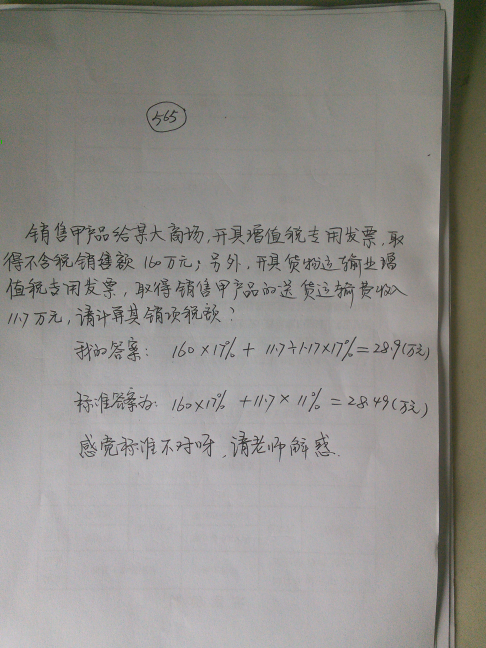 565
销售甲产品给某大商场,开具增值税专用发票,取
得不含税销售额160万元;另外,开具货物运输业增
值税专用发票,取得销售甲产品的送货运输费收入
11.7万元,请计算其销项税额?
我的答案: 160×17%+11.7÷1.17×17%=28.9(万元)
标准答案为: 160×17%+11.7×11%=28.49(万元)
感觉标准不对呀,请老师解惑.